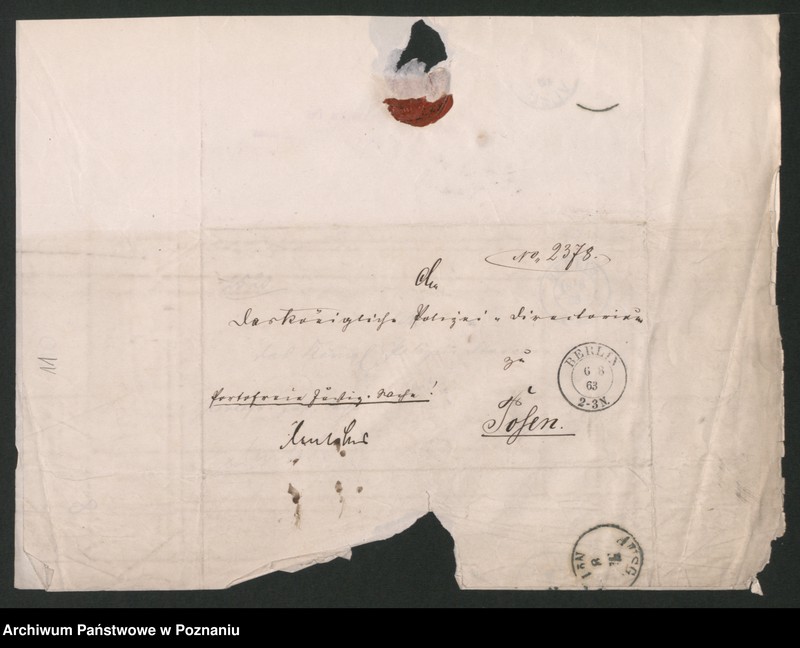 No. 2378.
An
das Königliche Polizei-Directorium
zu
BERLIN
6 8
63
2-3N.
Portofreie Justiz-Sache!
Posen.
11
AUSG
N21
8
Archiwum Państwowe w Poznaniu